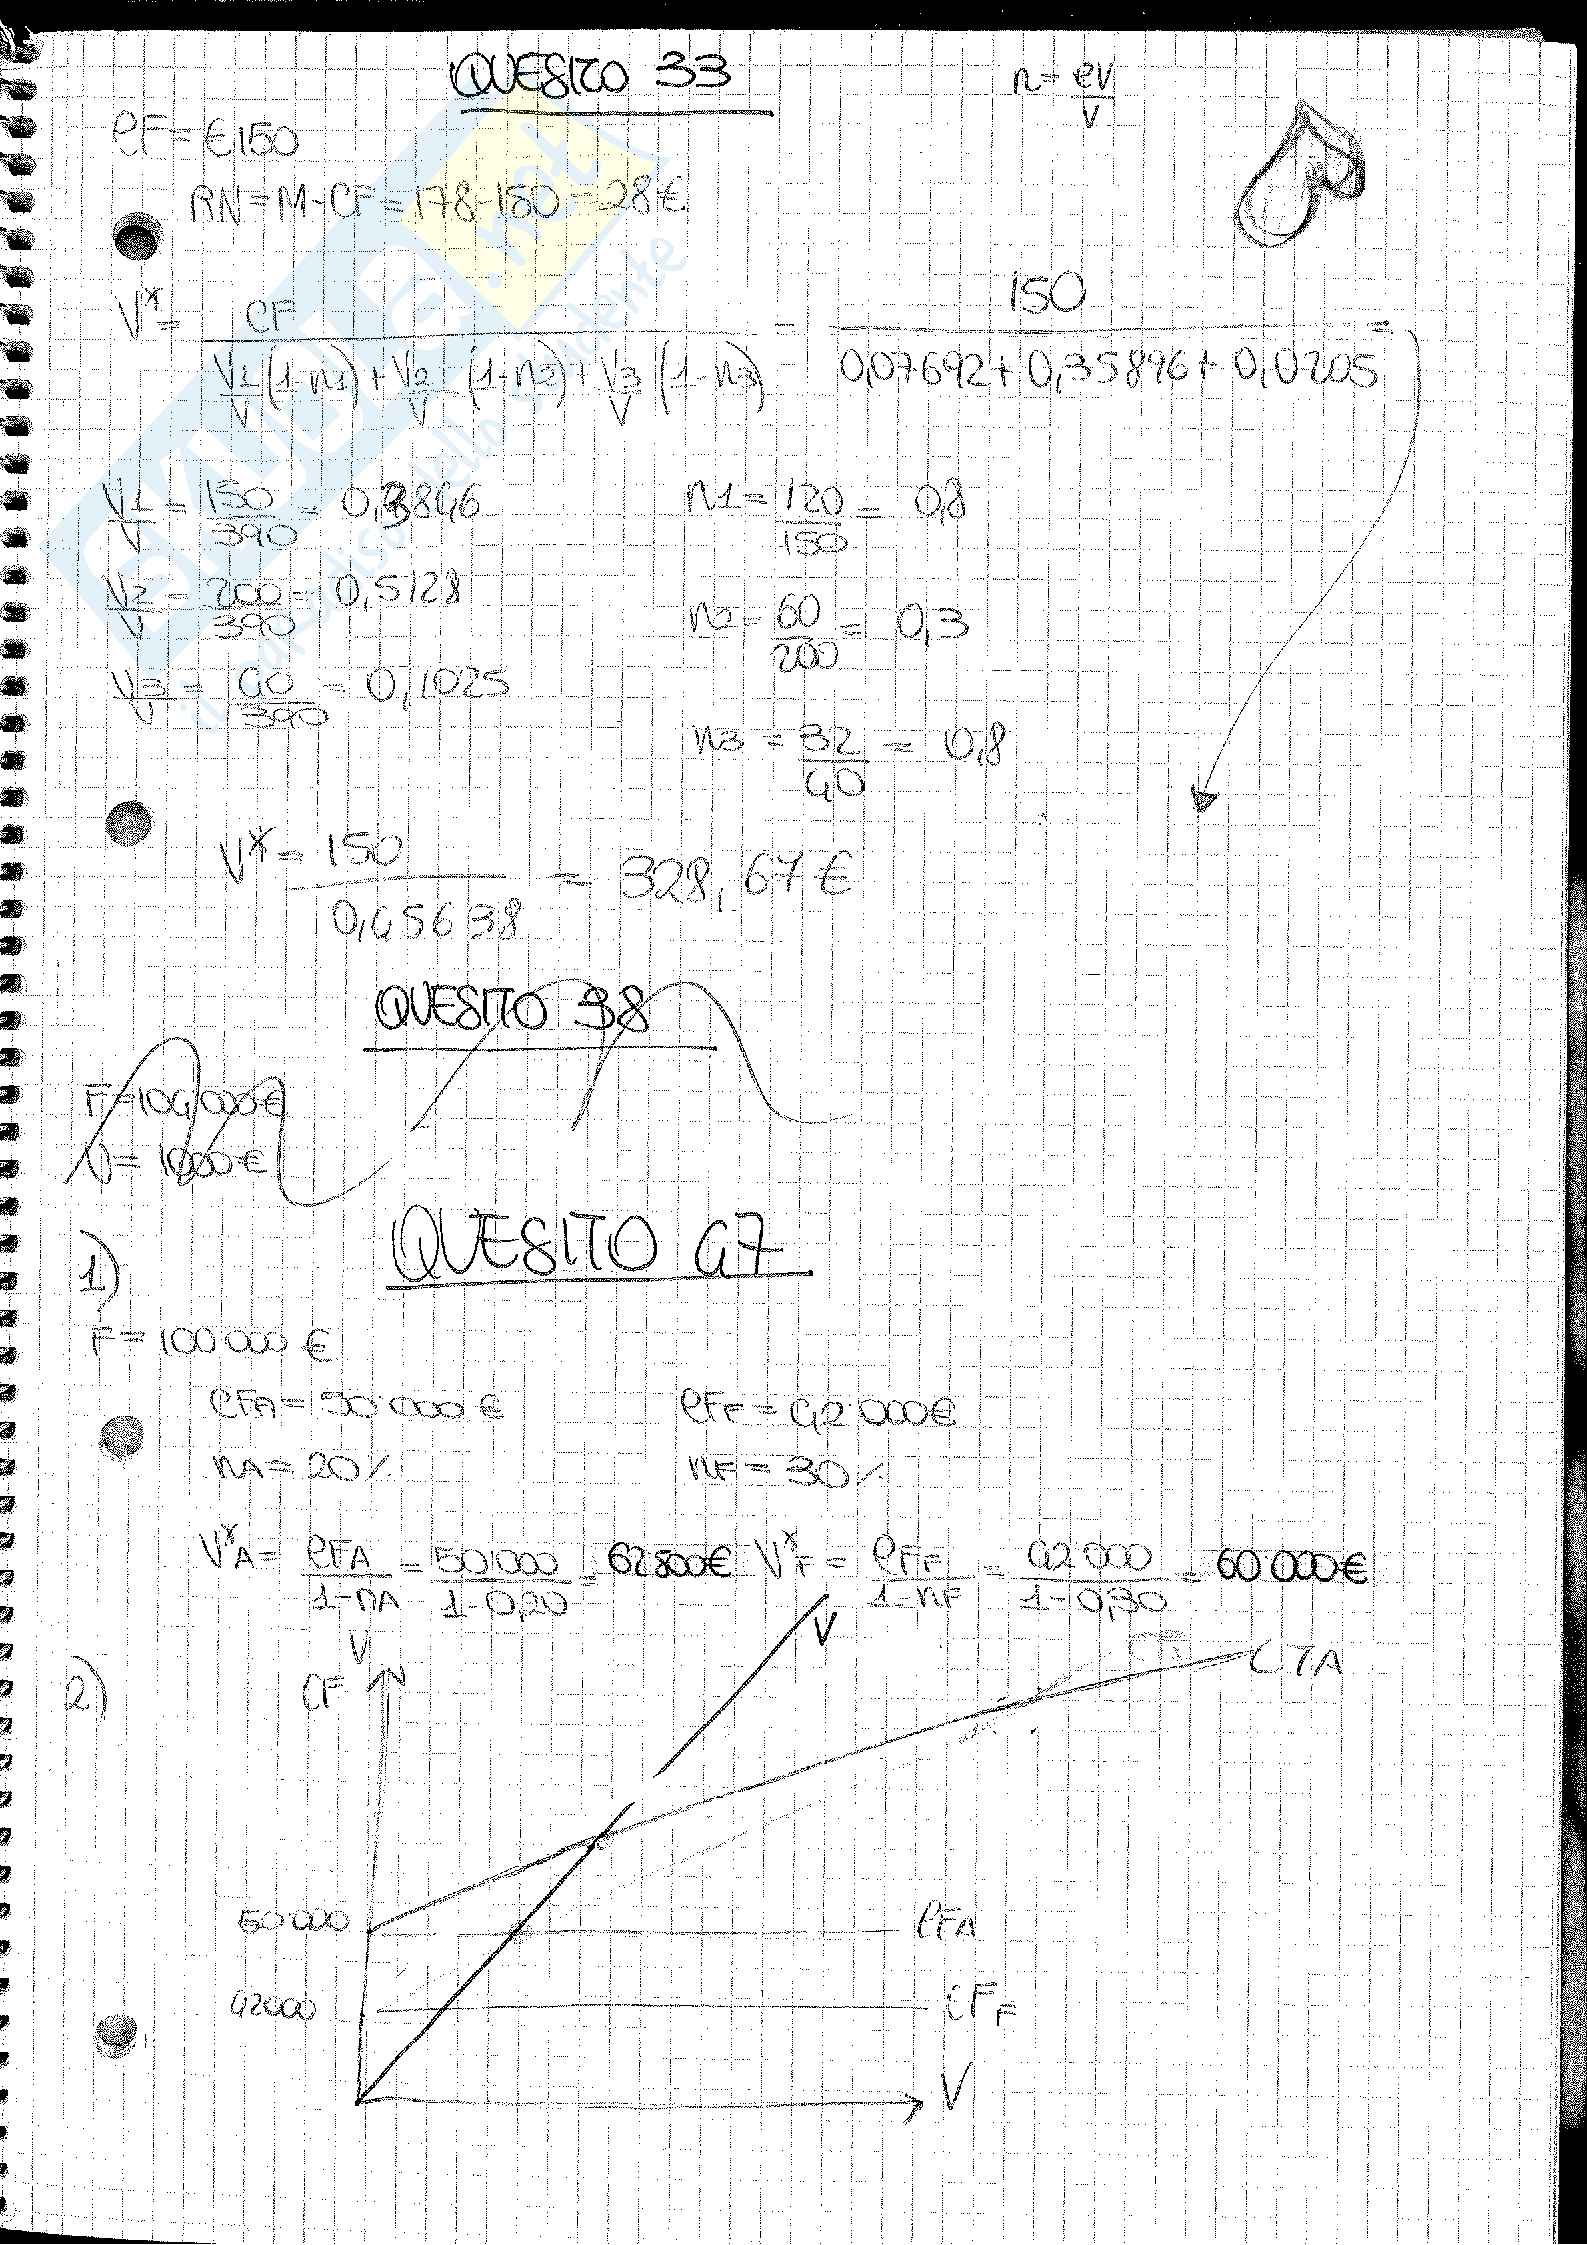 QUESITO 33
n = CV/V
CF = € 150
RN = M - CF = 178 - 150 = 28 €
V* = CF / (V1/V (1-n1) + V2/V (1-n2) + V3/V (1-n3)) = 150 / (0,07692 + 0,35896 + 0,0205) =
V1/V = 150/390 = 0,3846
n1 = 120/150 = 0,8
V2/V = 200/390 = 0,5128
n2 = 60/200 = 0,3
V3/V = 40/390 = 0,1025
n3 = 32/40 = 0,8
V* = 150 / 0,45638 = 328,67 €
QUESITO 38
F = 104,000 €
V = 1000 €
QUESITO 47
1)
F = 100'000 €
CFA = 50'000 €
CFF = 42'000 €
nA = 20%
nF = 30%
V*A = CFA / (1-nA) = 50'000 / (1-0,20) = 62'500 €
V*F = CFF / (1-nF) = 42'000 / (1-0,30) = 60'000 €
2)
V
CF
V
CTA
50'000
CFA
42000
CFF
V